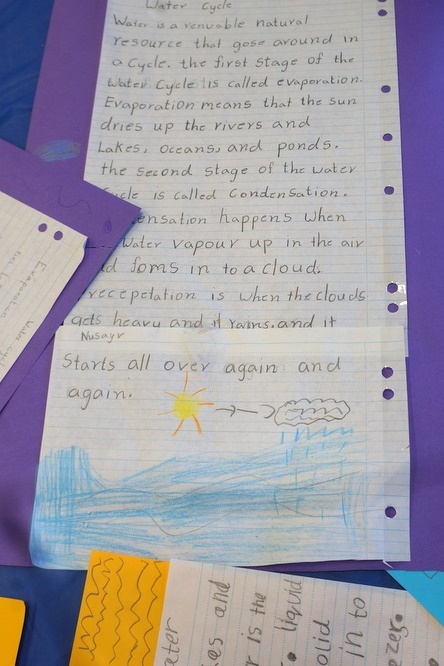 Water Cycle
Water is a renuable natural
resource that gose around in
a Cycle. the first stage of the
Water Cycle is called evaporation.
Evaporation means that the sun
dries up the rivers and
Lakes, oceans, and ponds.
the second stage of the water
cycle is called Condensation.
ensation happens when
Water vapour up in the air
d foms in to a cloud.
recepetation is when the clouds
gets heavy and it rains. and it
Nusayr
Starts all over again and
again.
Evaporation
ater
es and
r is the
liquid
olid
in to
zer.